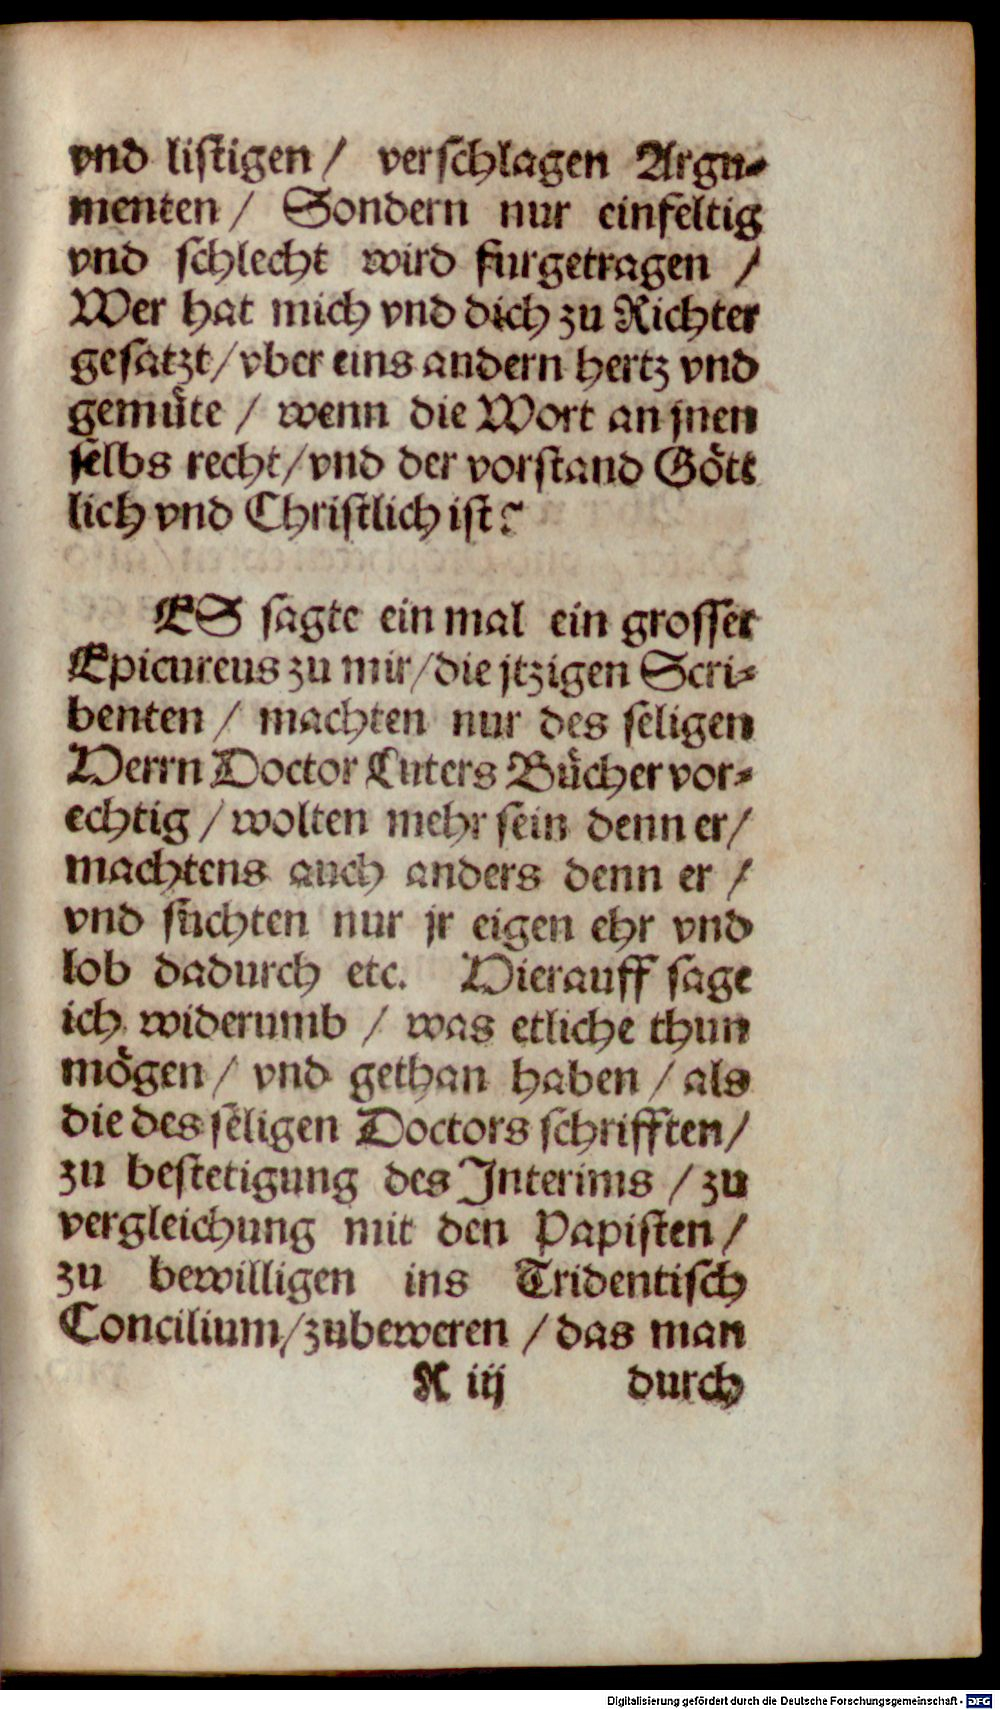 vnd listigen / verschlagen Argu-
menten / Sondern nur einfeltig
vnd schlecht wird furgetragen /
Wer hat mich vnd dich zu Richter
gesatzt / vber eins andern hertz vnd
gemüte / wenn die Wort an jnen
selbs recht / vnd der vorstand Gött
lich vnd Christlich ist?
ES sagte ein mal ein grosser
Epicureus zu mir / die jtzigen Scri-
benten / machten nur des seligen
Herrn Doctor Luters Bücher vor-
echtig / wolten mehr sein denn er /
machtens auch anders denn er /
vnd suchten nur jr eigen ehr vnd
lob dadurch etc. Hierauff sage
ich widerumb / was etliche thun
mögen / vnd gethan haben / als
die des seligen Doctors schrifften /
zu bestetigung des Interims / zu
vergleichung mit den Papisten /
zu bewilligen ins Tridentisch
Concilium / zubeweren / das man
R iij durch
Digitalisierung gefördert durch die Deutsche Forschungsgemeinschaft - DFG